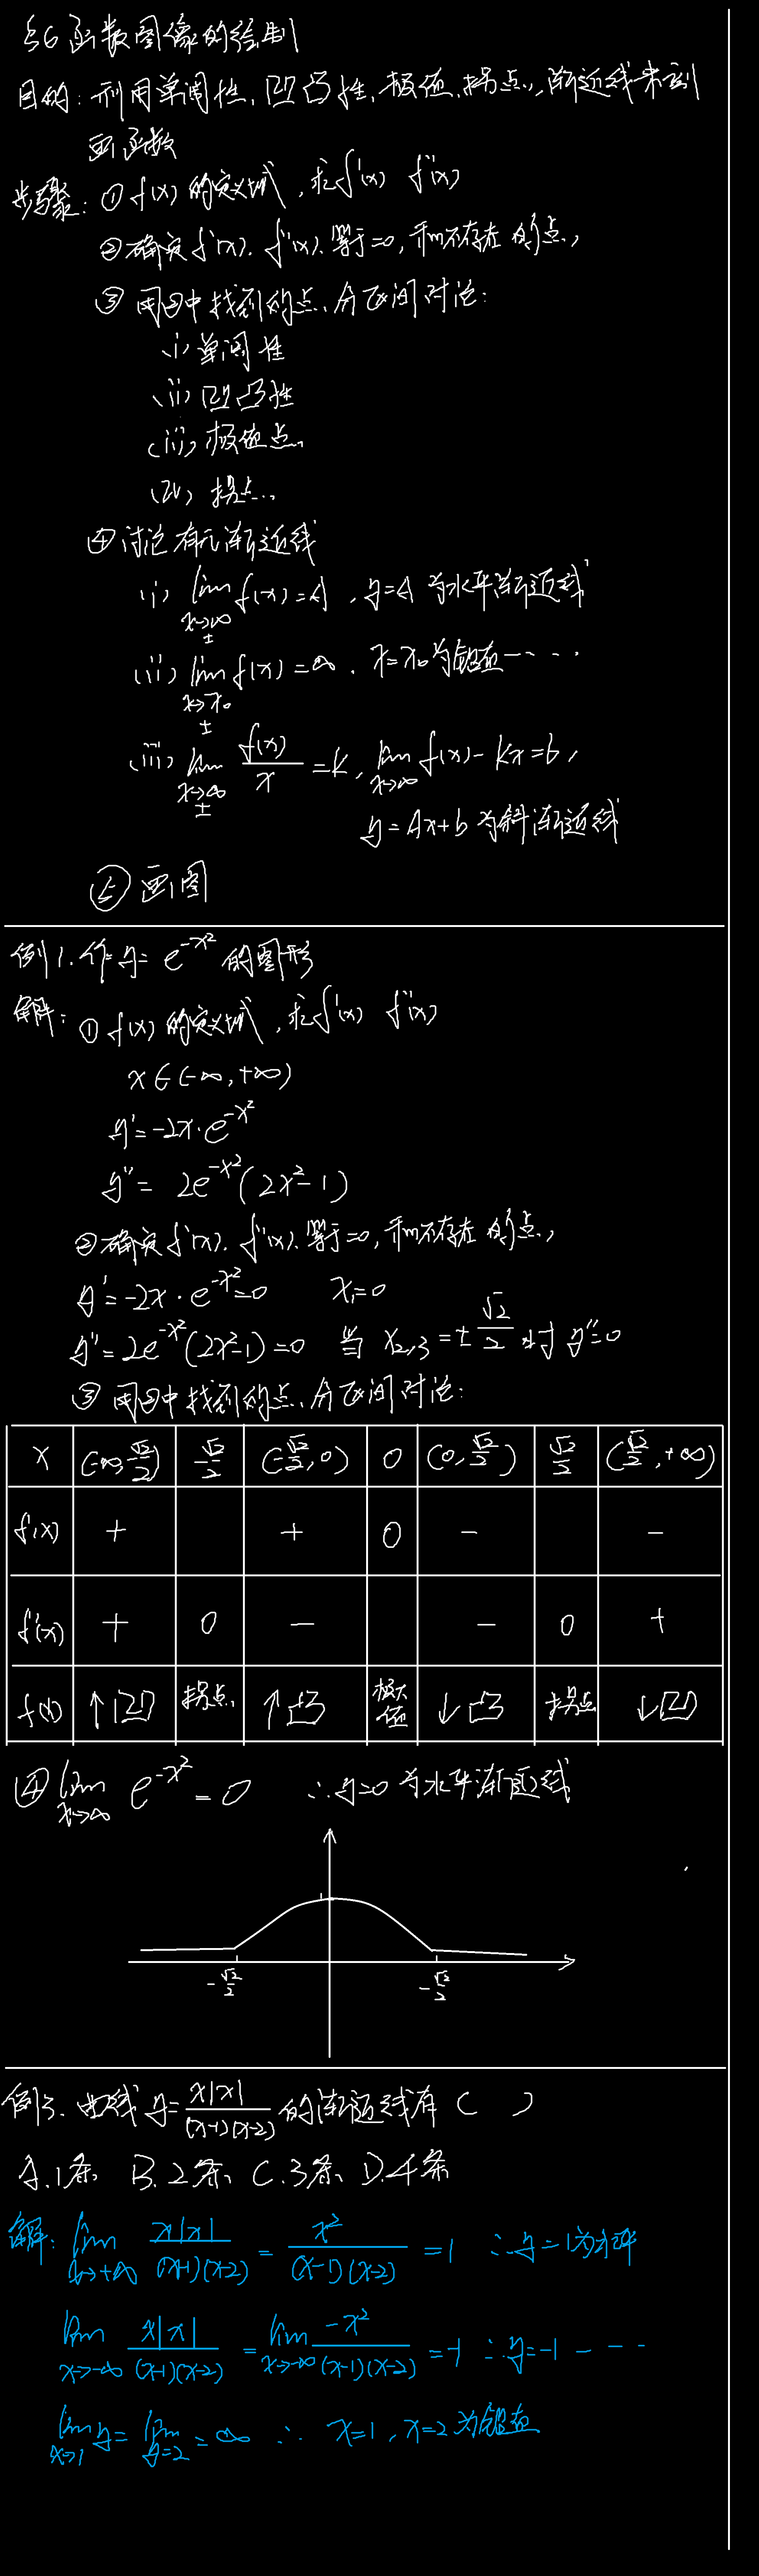 §6 函数图像的绘制
目的: 利用单调性、凹凸性、极值、拐点、渐近线来刻
画函数
步骤: ① f(x) 的定义域, 求f'(x) f''(x)
② 确定 f'(x). f''(x). 等于=0, 和不存在 的点,
③ 用②中找到的点、分区间讨论:
(i) 单调性
(ii) 凹凸性
(iii) 极值点
(iv) 拐点
④ 讨论有无渐近线
(i) lim x→∞ ± f(x)=A , y=A 为水平渐近线
(ii) lim x→x₀ ± f(x)=∞ . x=x₀为铅直----
(iii) lim x→∞ ± f(x)/x =k, lim x→∞ f(x)-kx=b,
y=Ax+b 为斜渐近线
⑤ 画图
例1. 作 y= e^{-x²} 的图形
解: ① f(x) 的定义域, 求f'(x) f''(x)
x∈(-∞,+∞)
y'=-2x·e^{-x²}
y''= 2e^{-x²}(2x²-1)
② 确定 f'(x). f''(x). 等于=0, 和不存在 的点,
y'=-2x·e^{-x²}=0 x₁=0
y''=2e^{-x²}(2x²-1)=0 当 x₂,₃=±√2/2 时 y''=0
③ 用②中找到的点、分区间讨论:
x (-∞,-√2/2) -√2/2 (-√2/2,0) 0 (0,√2/2) √2/2 (√2/2,+∞)
f'(x) + + 0 - -
f''(x) + 0 - - 0 +
f(x) ↑凹 拐点 ↑凸 极大值 ↓凸 拐点 ↓凹
④ lim x→∞ e^{-x²} = 0 ∴y=0 为水平渐近线
1
-√2/2 -√2/2
例3. 曲线 y= x|x|/(x-1)(x-2) 的渐近线有 ( )
A.1条 B.2条 C.3条 D.4条
解: lim x→+∞ x|x|/(x-1)(x-2) = x²/(x-1)(x-2) =1 ∴y=1为水平
lim x→-∞ x|x|/(x-1)(x-2) = lim x→-∞ -x²/(x-1)(x-2) =-1 ∴y=-1 ----
lim x→1 y= lim y=2 =∞ ∴ x=1, x=2 为铅直